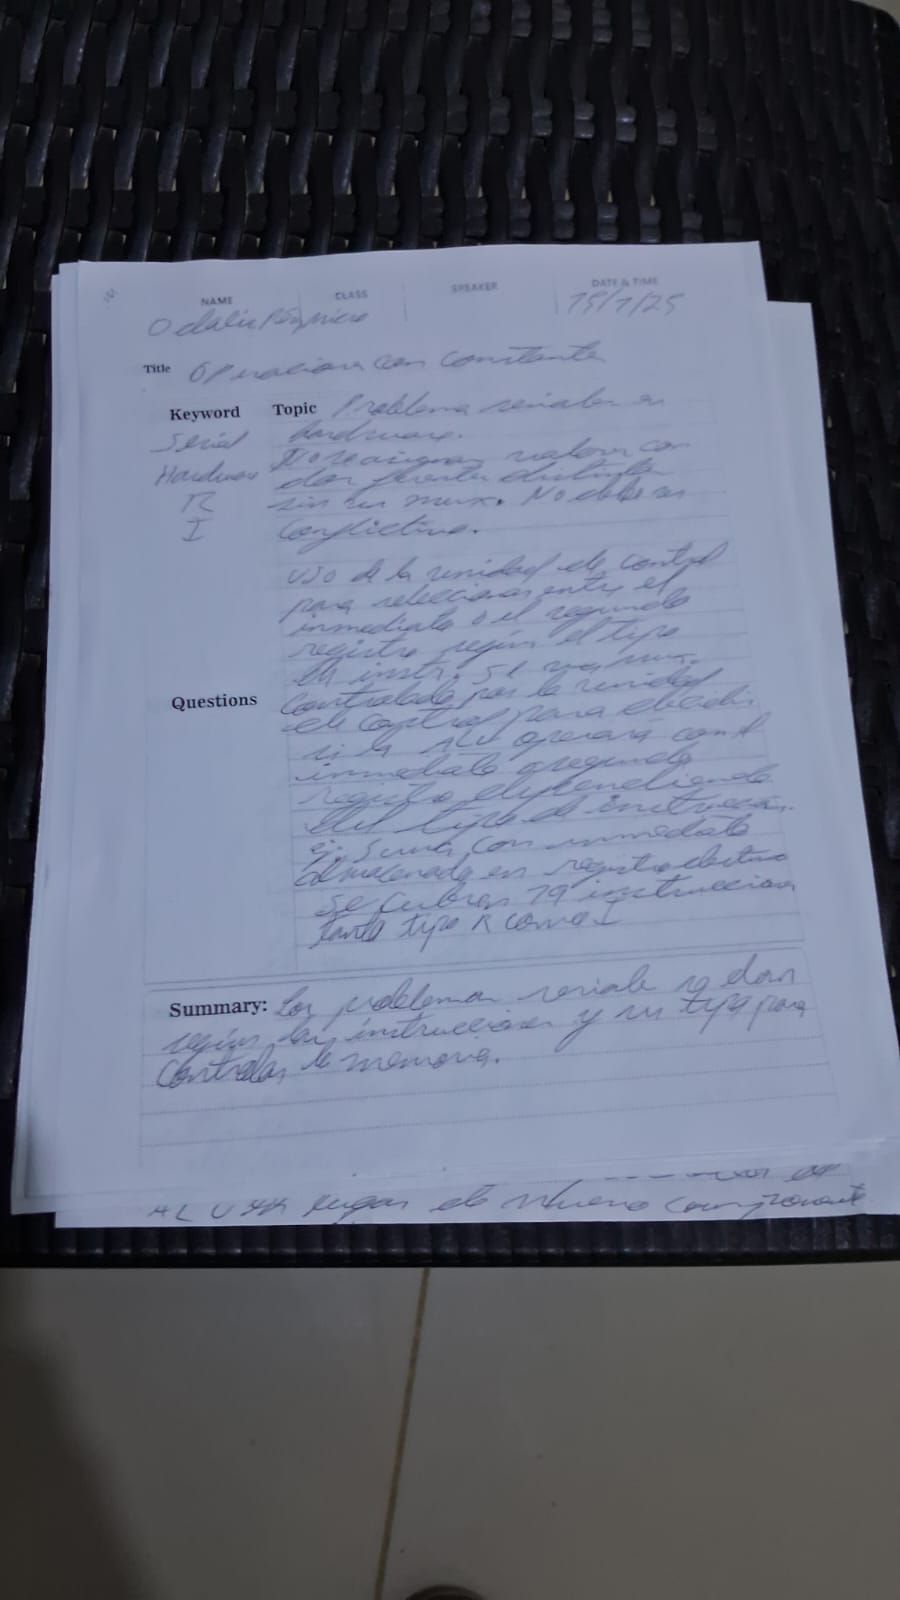 NAME CLASS SPEAKER DATE & TIME
Odalis 15/7/25
Title Operaciones con constante
Keyword Topic Problemas seriales en
Serial hardware.
Hardware No se asignan valores con
R dos fuentes distintas
I sin un mux. No debe ser
conflictivo.
Uso de la unidad de control
para seleccionar entre el
inmediato o el segundo
registro según el tipo
de instr. Se usa mux
Questions controlado por la unidad
de control para decidir
si la ALU operará con el
inmediato o segundo
registro dependiendo
del tipo de instrucción.
ej. Suma con inmediato
almacenado en registro destino
Se cubren 19 instrucciones
tanto tipo R como I
Summary: Los problemas seriales se dan
según las instrucciones y su tipo para
controlar la memoria.
ALU en lugar de nuevo componente